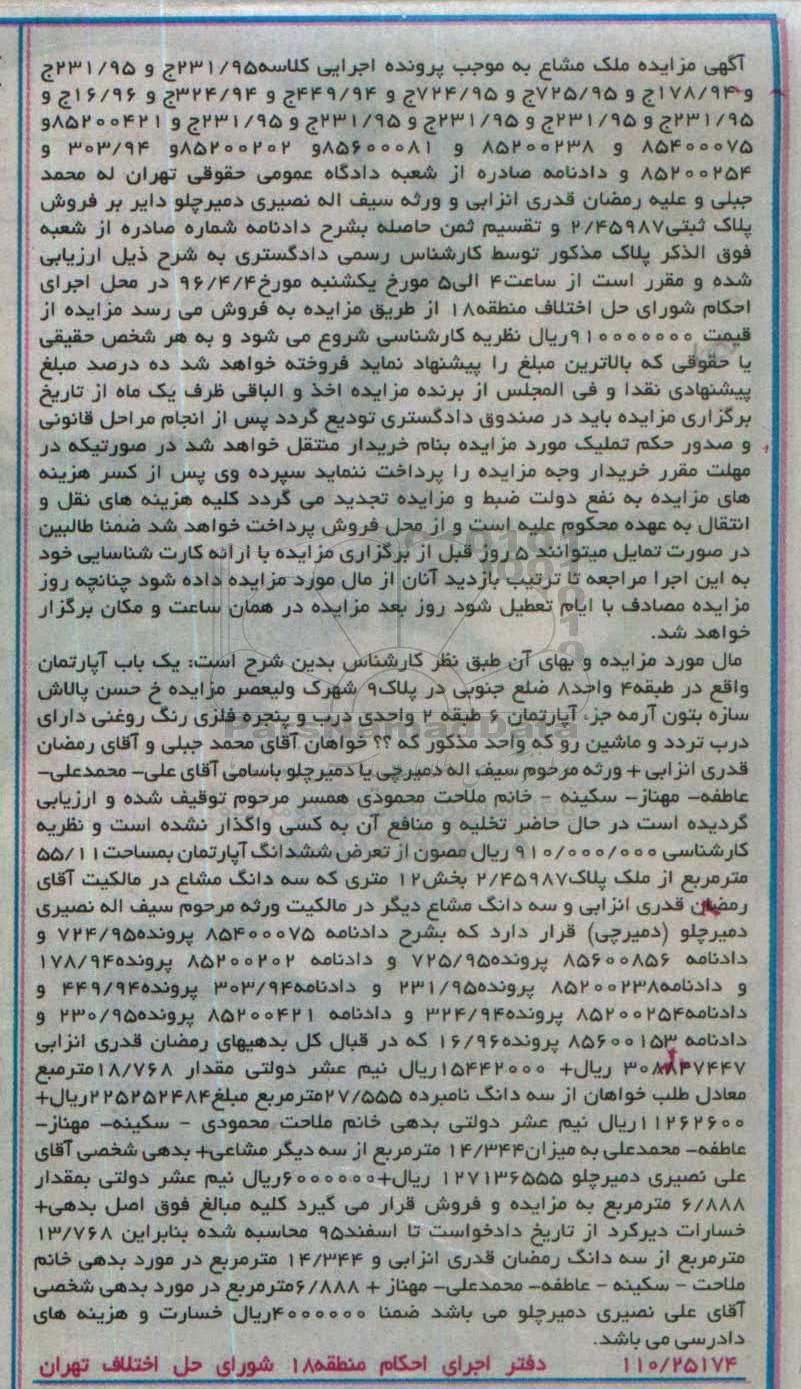 آگهی مزایده ملک مشاع به موجب پرونده اجرایی کلاسه۲۳۱/۹۵ج و ۲۳۱/۹۵ج
و۱۷۸/۹۴ج و ۷۲۵/۹۵ج و ۷۲۴/۹۵ج و ۴۴۹/۹۴ج و ۳۲۴/۹۴ج و ۱۶/۹۶ج و
۲۳۱/۹۵ج و ۲۳۱/۹۵ج و ۲۳۱/۹۵ج و ۲۳۱/۹۵ج و ۲۳۱/۹۵ج و ۸۵۲۰۰۴۲۱و
۸۵۴۰۰۰۷۵ و ۸۵۲۰۰۲۳۸ و ۸۵۶۰۰۰۸۱و ۸۵۲۰۰۲۰۲و ۳۰۳/۹۴ و
۸۵۲۰۰۲۵۴ و دادنامه صادره از شعبه دادگاه عمومی حقوقی تهران له محمد
جبلی و علیه رمضان قدری انزابی و ورثه سیف اله نصیری دمیرچلو دایر بر فروش
پلاک ثبتی۲/۴۵۹۸۷ و تقسیم ثمن حاصله بشرح دادنامه شماره صادره از شعبه
فوق الذکر پلاک مذکور توسط کارشناس رسمی دادگستری به شرح ذیل ارزیابی
شده و مقرر است از ساعت۴ الی۵ مورخ یکشنبه مورخ۹۶/۴/۴ در محل اجرای
احکام شورای حل اختلاف منطقه۱۸ از طریق مزایده به فروش می رسد مزایده از
قیمت ۹۱۰۰۰۰۰۰۰ریال نظریه کارشناسی شروع می شود و به هر شخص حقیقی
یا حقوقی که بالاترین مبلغ را پیشنهاد نماید فروخته خواهد شد ده درصد مبلغ
پیشنهادی نقدا و فی المجلس از برنده مزایده اخذ و الباقی ظرف یک ماه از تاریخ
برگزاری مزایده باید در صندوق دادگستری تودیع گردد پس از انجام مراحل قانونی
و صدور حکم تملیک مورد مزایده بنام خریدار منتقل خواهد شد در صورتیکه در
مهلت مقرر خریدار وجه مزایده را پرداخت ننماید سپرده وی پس از کسر هزینه
های مزایده به نفع دولت ضبط و مزایده تجدید می گردد کلیه هزینه های نقل و
انتقال به عهده محکوم علیه است و از محل فروش پرداخت خواهد شد ضمنا طالبین
در صورت تمایل میتوانند ۵ روز قبل از برگزاری مزایده با ارائه کارت شناسایی خود
به این اجرا مراجعه تا ترتیب بازدید آنان از مال مورد مزایده داده شود چنانچه روز
مزایده مصادف با ایام تعطیل شود روز بعد مزایده در همان ساعت و مکان برگزار
خواهد شد.
مال مورد مزایده و بهای آن طبق نظر کارشناس بدین شرح است: یک باب آپارتمان
واقع در طبقه۴ واحد۸ ضلع جنوبی در پلاک۹ شهرک ولیعصر مزایده خ حسن پالاش
سازه بتون آرمه جز، آپارتمان ۶ طبقه ۲ واحدی درب و پنجره فلزی رنگ روغنی دارای
درب تردد و ماشین رو که واحد مذکور که ؟؟ خواهان آقای محمد جبلی و آقای رمضان
قدری انزابی + ورثه مرحوم سیف اله دمیرچی یا دمیرچلو باسامی آقای علی– محمدعلی–
عاطفه– مهناز– سکینه – خانم ملاحت محمودی همسر مرحوم توقیف شده و ارزیابی
گردیده است در حال حاضر تخلیه و منافع آن به کسی واگذار نشده است و نظریه
کارشناسی ۹۱۰/۰۰۰/۰۰۰ ریال مصون از تعرض ششدانگ آپارتمان بمساحت۵۵/۱۱
مترمربع از ملک پلاک۲/۴۵۹۸۷ بخش۱۲ متری که سه دانگ مشاع در مالکیت آقای
رمضان قدری انزابی و سه دانگ مشاع دیگر در مالکیت ورثه مرحوم سیف اله نصیری
دمیرچلو (دمیرچی) قرار دارد که بشرح دادنامه ۸۵۴۰۰۰۷۵ پرونده۷۲۴/۹۵ و
دادنامه ۸۵۶۰۰۸۵۶ پرونده۷۲۵/۹۵ و دادنامه ۸۵۲۰۰۲۰۲ پرونده۱۷۸/۹۴
و دادنامه۸۵۲۰۰۲۳۸ پرونده۲۳۱/۹۵ و دادنامه۳۰۳/۹۴ پرونده۴۴۹/۹۴ و
دادنامه۸۵۲۰۰۲۵۴ پرونده۳۲۴/۹۴ و دادنامه ۸۵۲۰۰۴۲۱ پرونده۲۳۰/۹۵ و
دادنامه ۸۵۶۰۰۱۵۳ پرونده۱۶/۹۶ که در قبال کل بدهیهای رمضان قدری انزابی
ریال+ ۱۵۴۴۲۰۰۰ریال نیم عشر دولتی مقدار ۱۸/۷۶۸مترمبع
معادل طلب خواهان از سه دانگ نامبرده ۲۷/۵۵۵مترمربع مبلغ۲۲۵۲۵۲۴۸۴ریال+
۱۱۲۶۲۶۰۰ریال نیم عشر دولتی بدهی خانم ملاحت محمودی – سکینه– مهناز–
عاطفه– محمدعلی به میزان۱۴/۳۴۴ مترمربع از سه دیگر مشاعی+ بدهی شخصی آقای
علی نصیری دمیرچلو ۱۲۷۱۳۶۵۵۵ ریال+۶۰۰۰۰۰۰ریال نیم عشر دولتی بمقدار
۶/۸۸۸ مترمربع به مزایده و فروش قرار می گیرد کلیه مبالغ فوق اصل بدهی+
خسارات دیرکرد از تاریخ دادخواست تا اسفند۹۵ محاسبه شده بنابراین ۱۳/۷۶۸
مترمربع از سه دانگ رمضان قدری انزابی و ۱۴/۳۴۴ مترمربع در مورد بدهی خانم
ملاحت – سکینه – عاطفه– محمدعلی– مهناز + ۶/۸۸۸مترمربع در مورد بدهی شخصی
آقای علی نصیری دمیرچلو می باشد ضمنا ۴۰۰۰۰۰۰ریال خسارت و هزینه های
دادرسی می باشد.
۱۱۰/۲۵۱۷۴ دفتر اجرای احکام منطقه۱۸ شورای حل اختلاف تهران